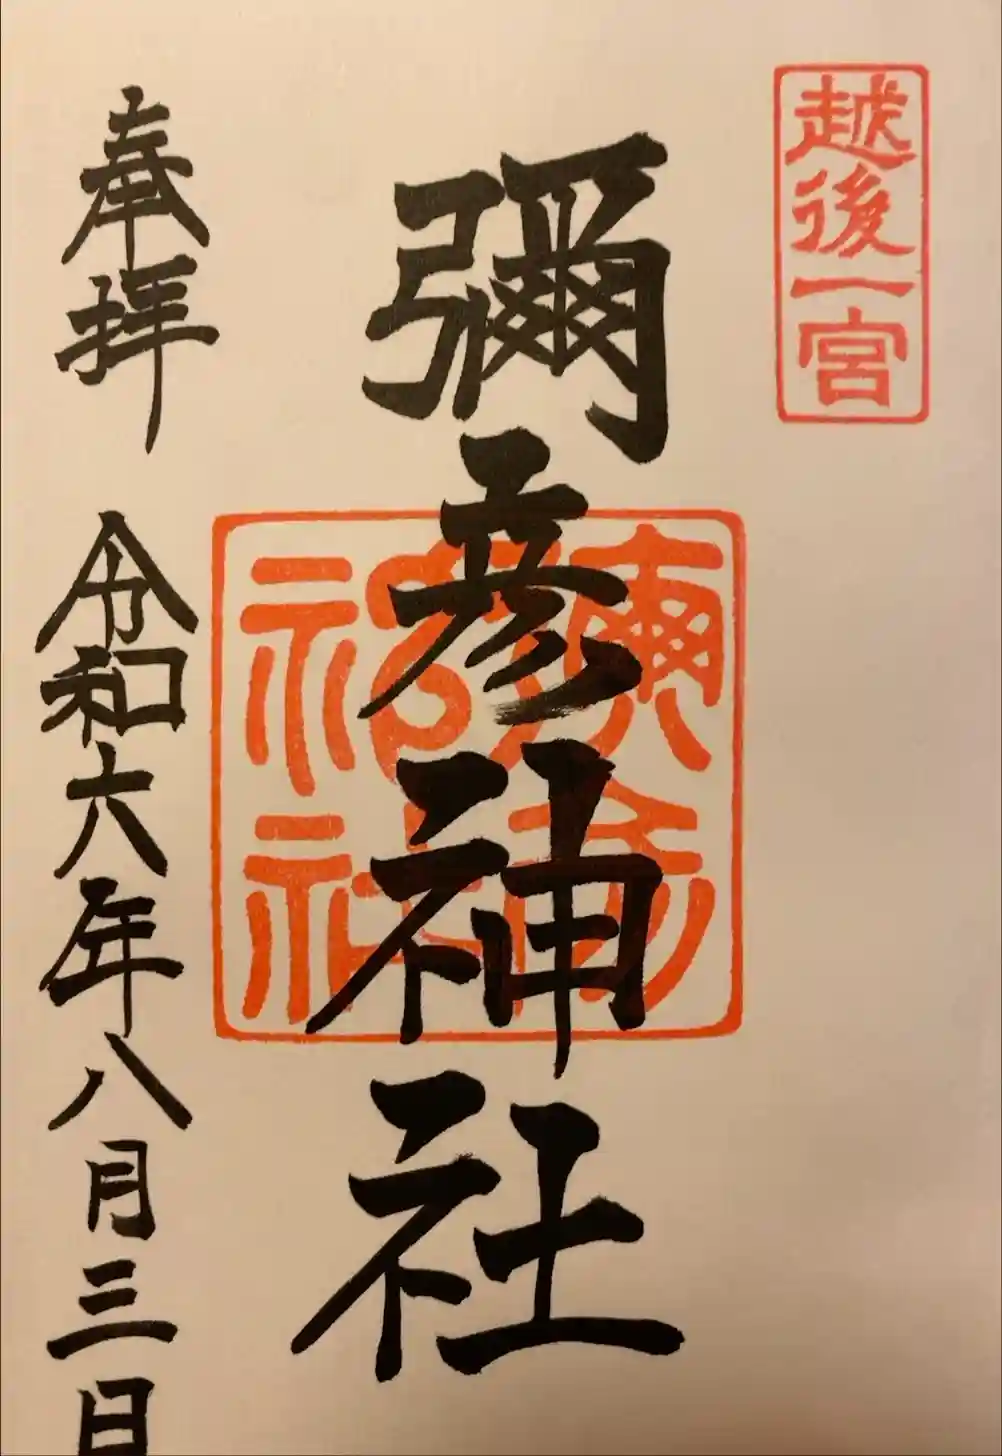 越後一宮
彌彦神社
奉拝
令和六年八月三日